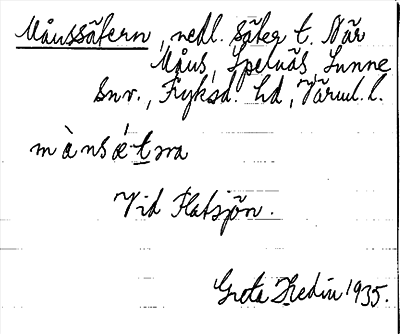 Månssätern, nedl. säter t. När
Måns, Spelnäs, Sunne
snr., Fryksd. hd, Värml. l.
mànsǽtṇa
Vid Flatsjön.
Greta Hedin 1935.